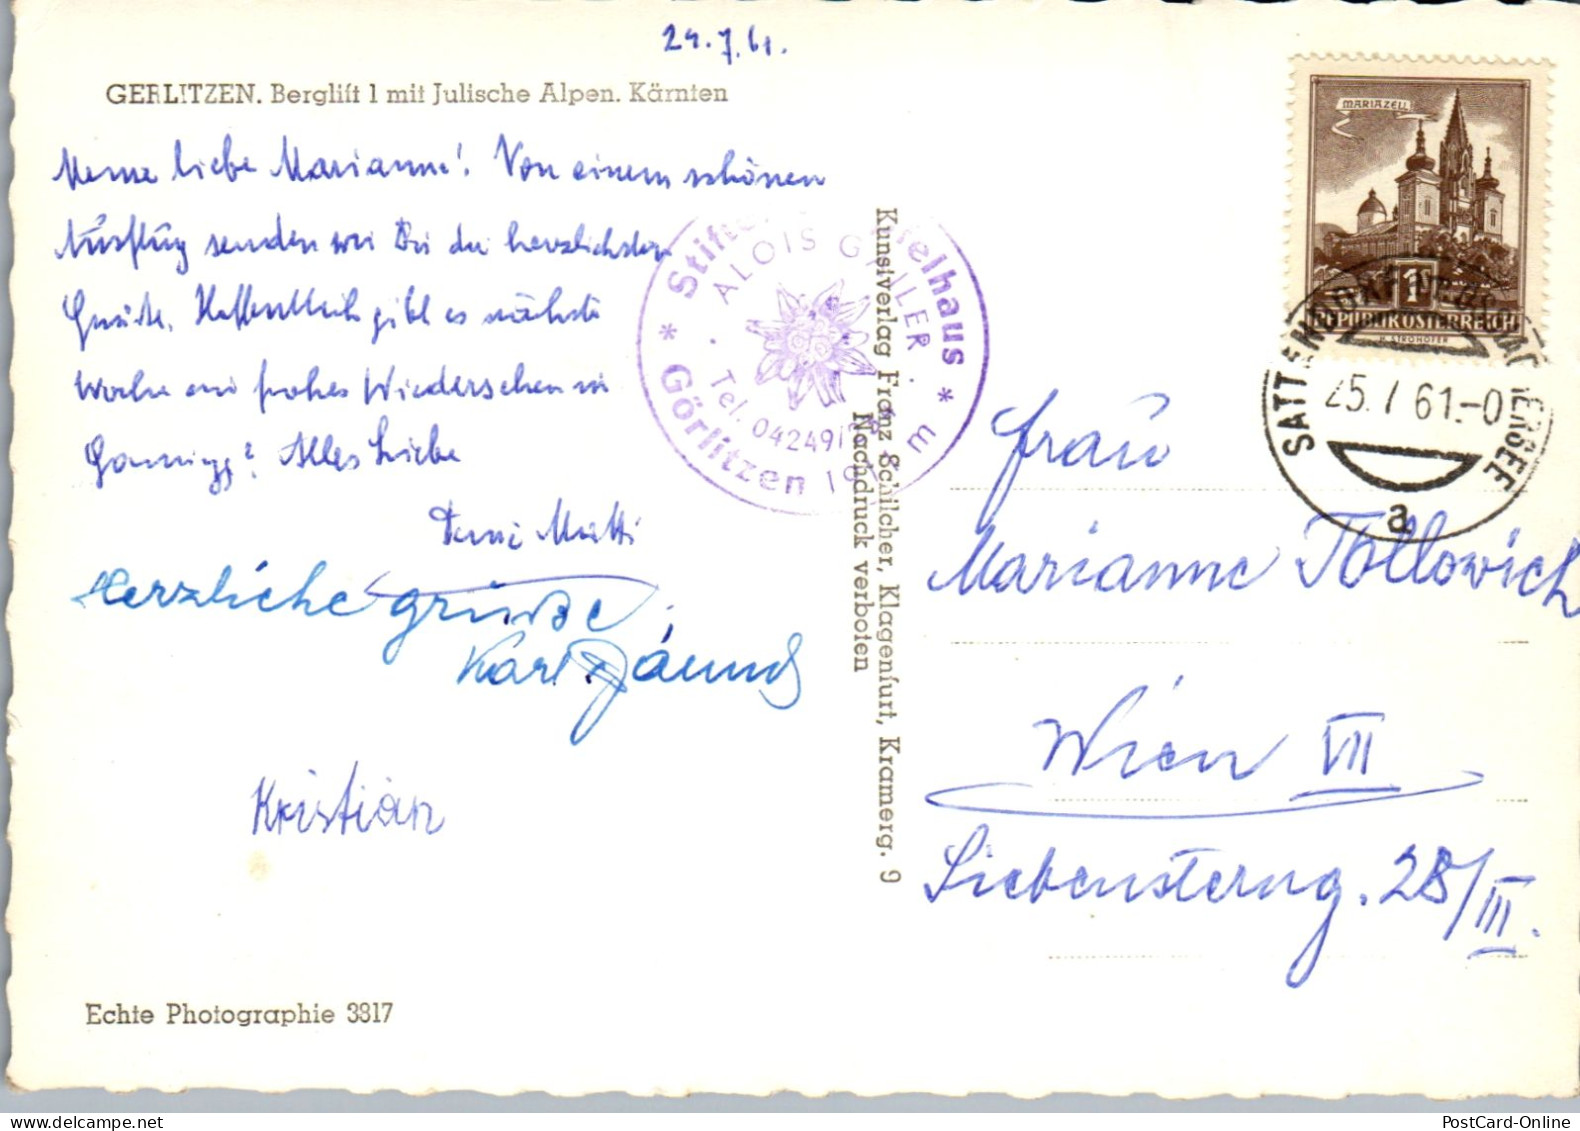 24.7.61.
GERLITZEN. Berglift 1 mit Julische Alpen. Kärnten
Meine liebe Marianne! Von einem schönen
Ausflug senden wir Dir die herzlichsten
Grüße. Hoffentlich gibt es nächste
Woche ein frohes Wiedersehen in
Alles Liebe
Deine Mutti
Herzliche Grüße
Karl
Kristian
Echte Photographie 3817
ALOIS GAILER
Tel. 04249/
* Görlitzen
Kunstverlag Franz Schilcher, Klagenfurt, Kramerg. 9
Nachdruck verboten
MARIAZELL
1
REPUBLIK ÖSTERREICH
H. STROHOFER
25.7 61.-0
a
Frau
Marianne Tollowich
Wien VII
Siebensterng. 28/III.
PostCard-Online